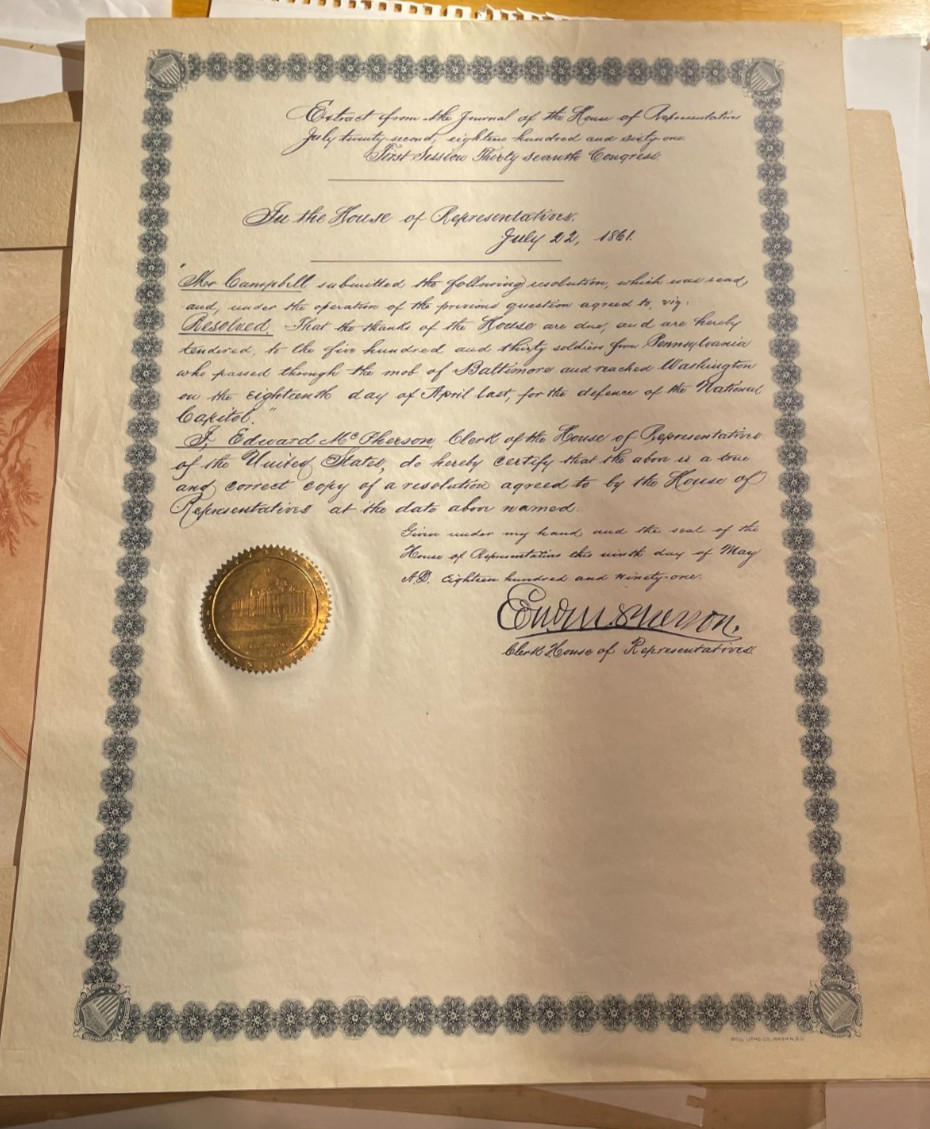 Extract from the Journal of the House of Representatives
July twenty-second, eighteen hundred and sixty-one
First Session Thirty seventh Congress.
In the House of Representatives.
July 22, 1861.
"Mr Campbell submitted the following resolution, which was read,
and, under the operation of the previous question agreed to, viz:
Resolved, That the thanks of the House are due, and are hereby
tendered, to the five hundred and thirty soldiers from Pennsylvania
who passed through the mob of Baltimore and reached Washington
on the eighteenth day of April last, for the defence of the National
Capitol."
I, Edward McPherson, Clerk of the House of Representatives
of the United States, do hereby certify that the above is a true
and correct copy of a resolution agreed to by the House of
Representatives at the date above named.
Given under my hand and the seal of the
House of Representatives this ninth day of May
A.D. Eighteen hundred and ninety-one.
Edw McPherson.
Clerk House of Representatives.